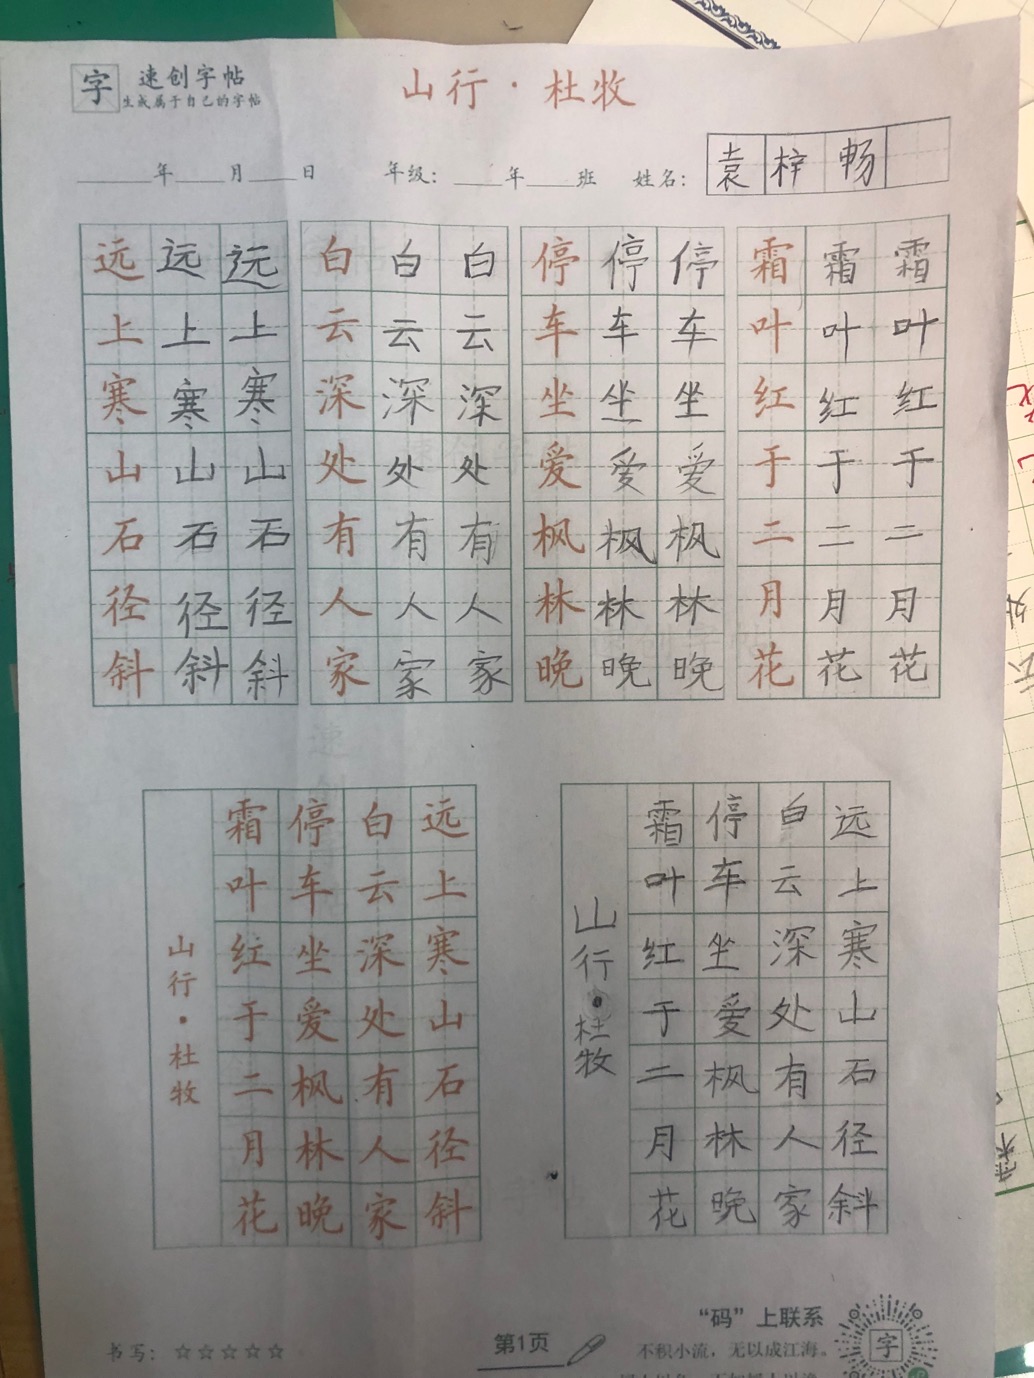 字 速创字帖
生成属于自己的字帖
山行·杜牧
____年____月____日 年级：____年____班 姓名：袁梓畅
远远远 白白白 停停停 霜霜霜
上上上 云云云 车车车 叶叶叶
寒寒寒 深深深 坐坐坐 红红红
山山山 处处处 爱爱爱 于于于
石石石 有有有 枫枫枫 二二二
径径径 人人人 林林林 月月月
斜斜斜 家家家 晚晚晚 花花花
远上寒山石径斜
白云深处有人家
停车坐爱枫林晚
霜叶红于二月花
山行·杜牧
远上寒山石径斜
白云深处有人家
停车坐爱枫林晚
霜叶红于二月花
山行·杜牧
书写：☆☆☆☆☆
第1页
“码”上联系
不积小流，无以成江海。
字